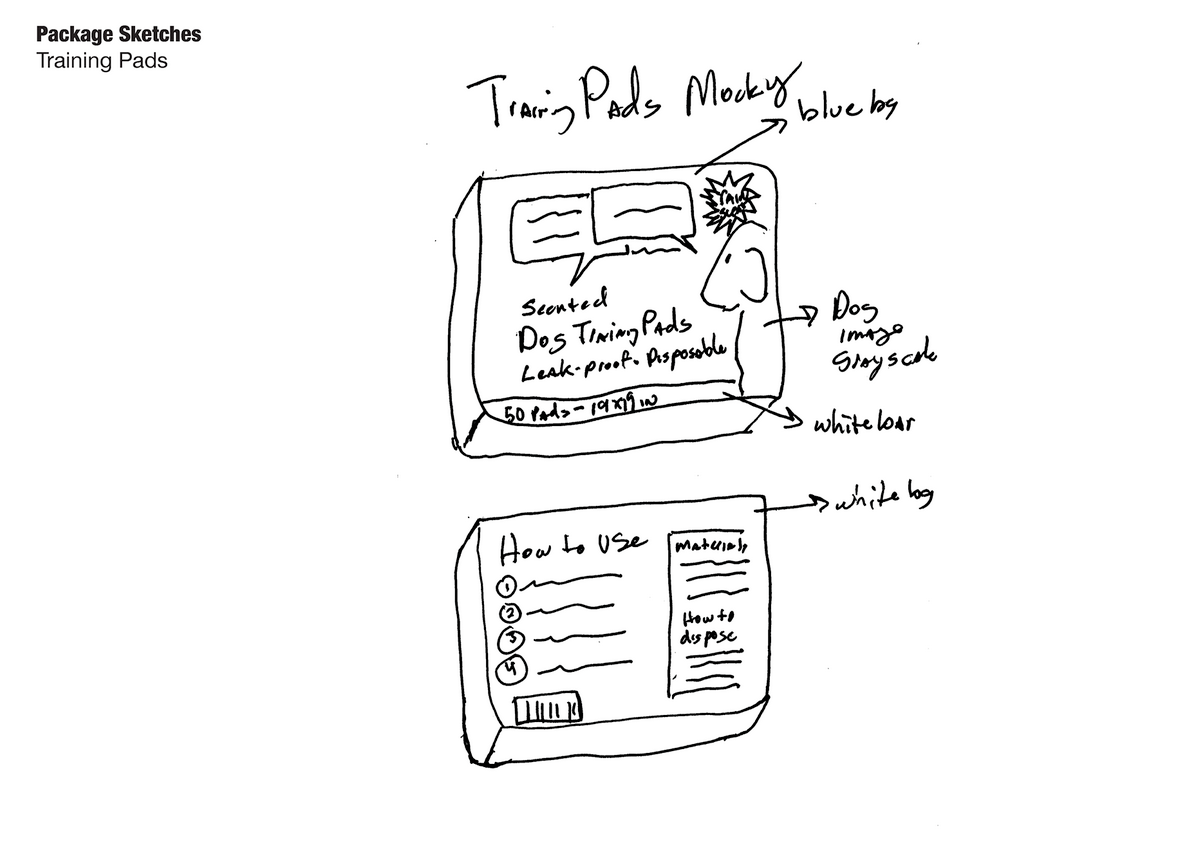 Package Sketches
Training Pads
Training Pads Mocky
blue bg
Scented
Dog Training Pads
Leak-proof. Disposable
50 Pads - 19x19 in
Dog
image
Grayscale
white bar
white bg
How to Use
1
2
3
4
Materials
How to
dispose